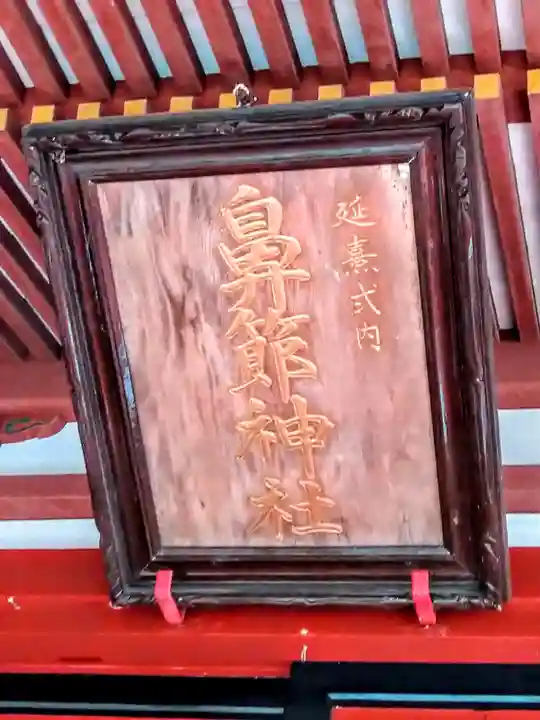 延熹式内
鼻節神社